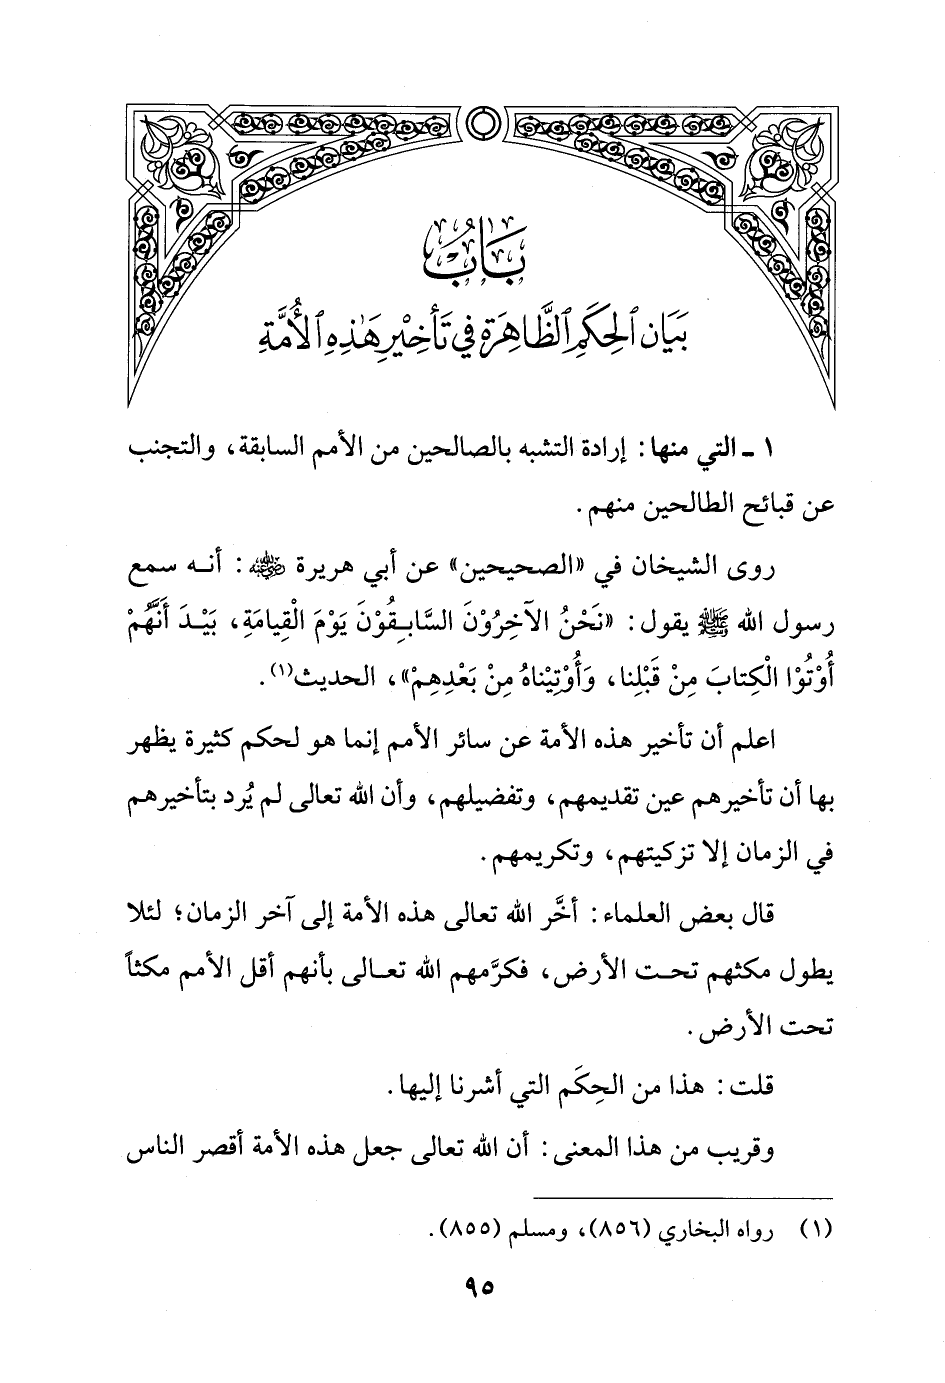 بَابٌ
بَيَانِ ٱلْحِكَمِ ٱلظَّاهِرَةِ فِي تَأْخِيْرِ هٰذِهِ ٱلأُمَّةِ
١ ـ التي منها: إرادة التشبه بالصالحين من الأمم السابقة، والتجنب
عن قبائح الطالحين منهم.
روى الشيخان في «الصحيحين» عن أبي هريرة رضي الله عنه: أنه سمع
رسول الله ﷺ يقول: «نَحْنُ الآخِرُوْنَ السَّابِقُوْنَ يَوْمَ الْقِيامَةِ، بَيْدَ أَنَّهُمْ
أُوْتُوْا الْكِتابَ مِنْ قَبْلِنا، وَأُوْتِيْناهُ مِنْ بَعْدِهِمْ»، الحديث(١).
اعلم أن تأخير هذه الأمة عن سائر الأمم إنما هو لحكم كثيرة يظهر
بها أن تأخيرهم عين تقديمهم، وتفضيلهم، وأن الله تعالى لم يُرد بتأخيرهم
في الزمان إلا تزكيتهم، وتكريمهم.
قال بعض العلماء: أخَّر الله تعالى هذه الأمة إلى آخر الزمان؛ لئلا
يطول مكثهم تحت الأرض، فكرَّمهم الله تعالى بأنهم أقل الأمم مكثاً
تحت الأرض.
قلت: هذا من الحِكَم التي أشرنا إليها.
وقريب من هذا المعنى: أن الله تعالى جعل هذه الأمة أقصر الناس
(١) رواه البخاري (٨٥٦)، ومسلم (٨٥٥).
٩٥